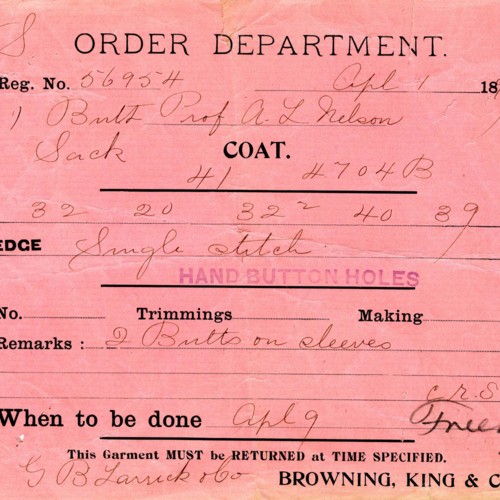 S ORDER DEPARTMENT.
Reg. No. 56954 Apl 1 18
1 Butt Prof A. L Nelson
Sack COAT.
41 4704B
32 20 32² 40 39
EDGE Single stitch
HAND BUTTON HOLES
No. Trimmings Making
Remarks : 2 Butts on sleeves
c.r.S.
When to be done Apl 9
This Garment MUST be RETURNED at TIME SPECIFIED.
G B Larrick & Co BROWNING, KING & C